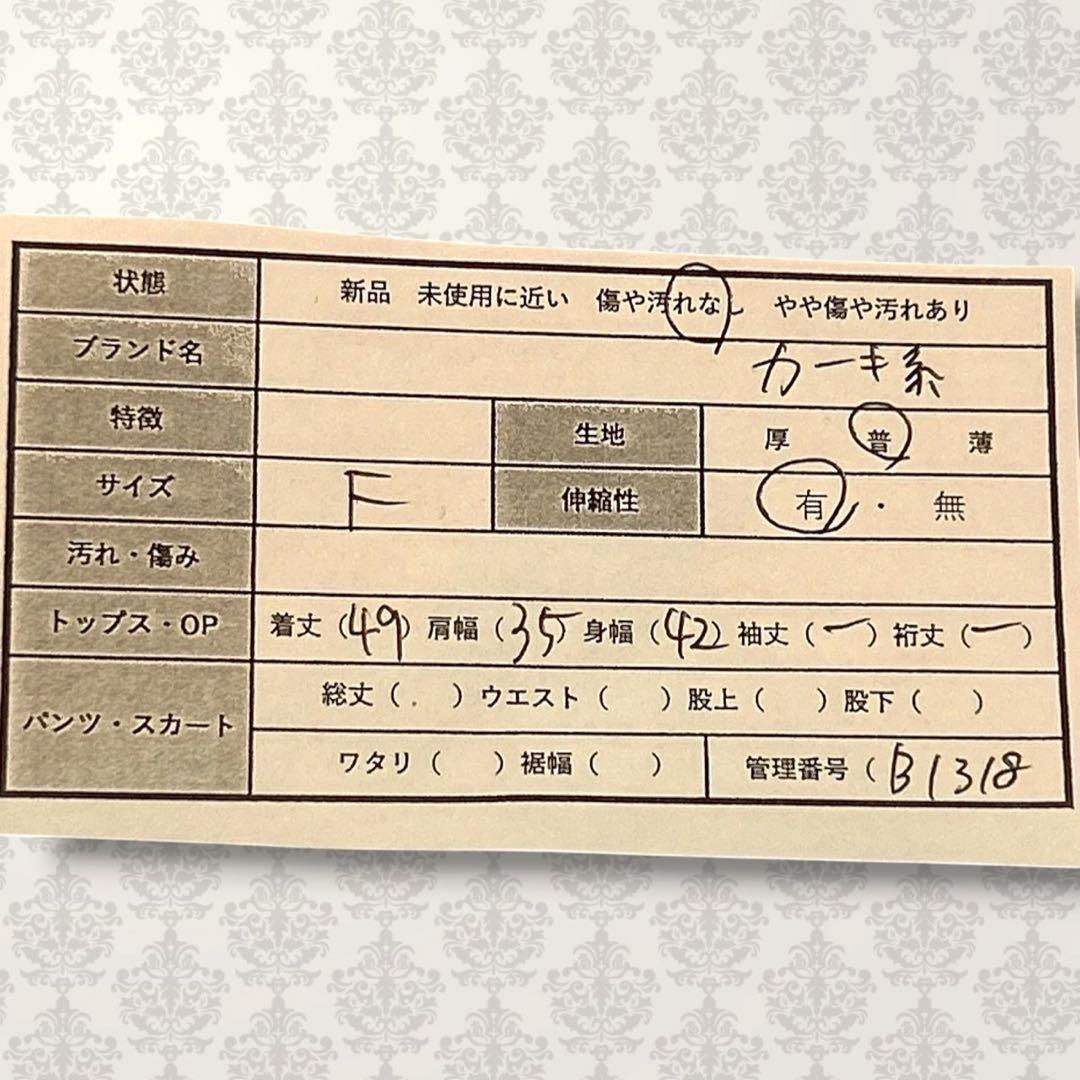 状態 新品 未使用に近い 傷や汚れなし やや傷や汚れあり
ブランド名 カーキ系
特徴 生地 厚 普 薄
サイズ F 伸縮性 有 ・ 無
汚れ・傷み
トップス・OP 着丈(49) 肩幅(35) 身幅(42) 袖丈(ー) 裄丈(ー)
パンツ・スカート 総丈( ) ウエスト( ) 股上( ) 股下( )
ワタリ( ) 裾幅( ) 管理番号( B1318